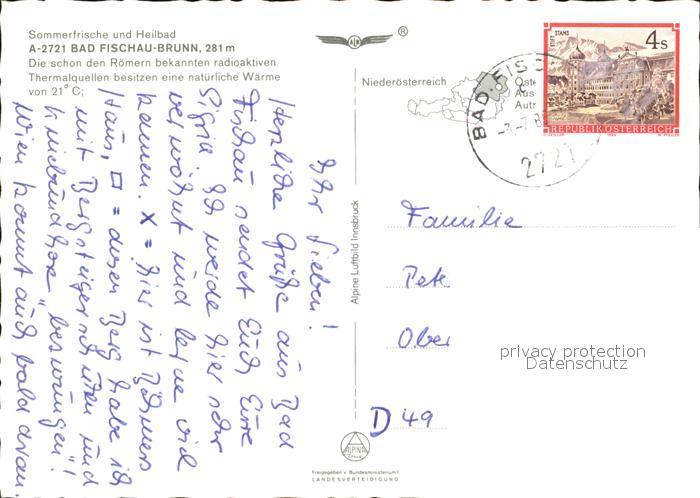 Sommerfrische und Heilbad
A-2721 BAD FISCHAU-BRUNN, 281 m
Die schon den Römern bekannten radioaktiven
Thermalquellen besitzen eine natürliche Wärme
von 21°C;
Ihr Lieben!
Herzliche Grüße aus Bad
Fischau sendet Euch Eure
Sigrid. Ich werde hier sehr
verwöhnt und lerne viel
kennen. X = hier ist Böhmers
Haus, □ = diesen Berg habe ich
mit Bergsteigerschuhen und
"Kniebundhose" bezwungen!
Wien kommt auch bald dran.
Alpine Luftbild Innsbruck
ALPINE
Freigegeben v. Bundesministerium f.
LANDESVERTEIDIGUNG
Niederösterreich
BAD FISC
2721
STIFT STAMS
4 S
REPUBLIK ÖSTERREICH
Familie
Pete
Ober
D 49
privacy protection
Datenschutz